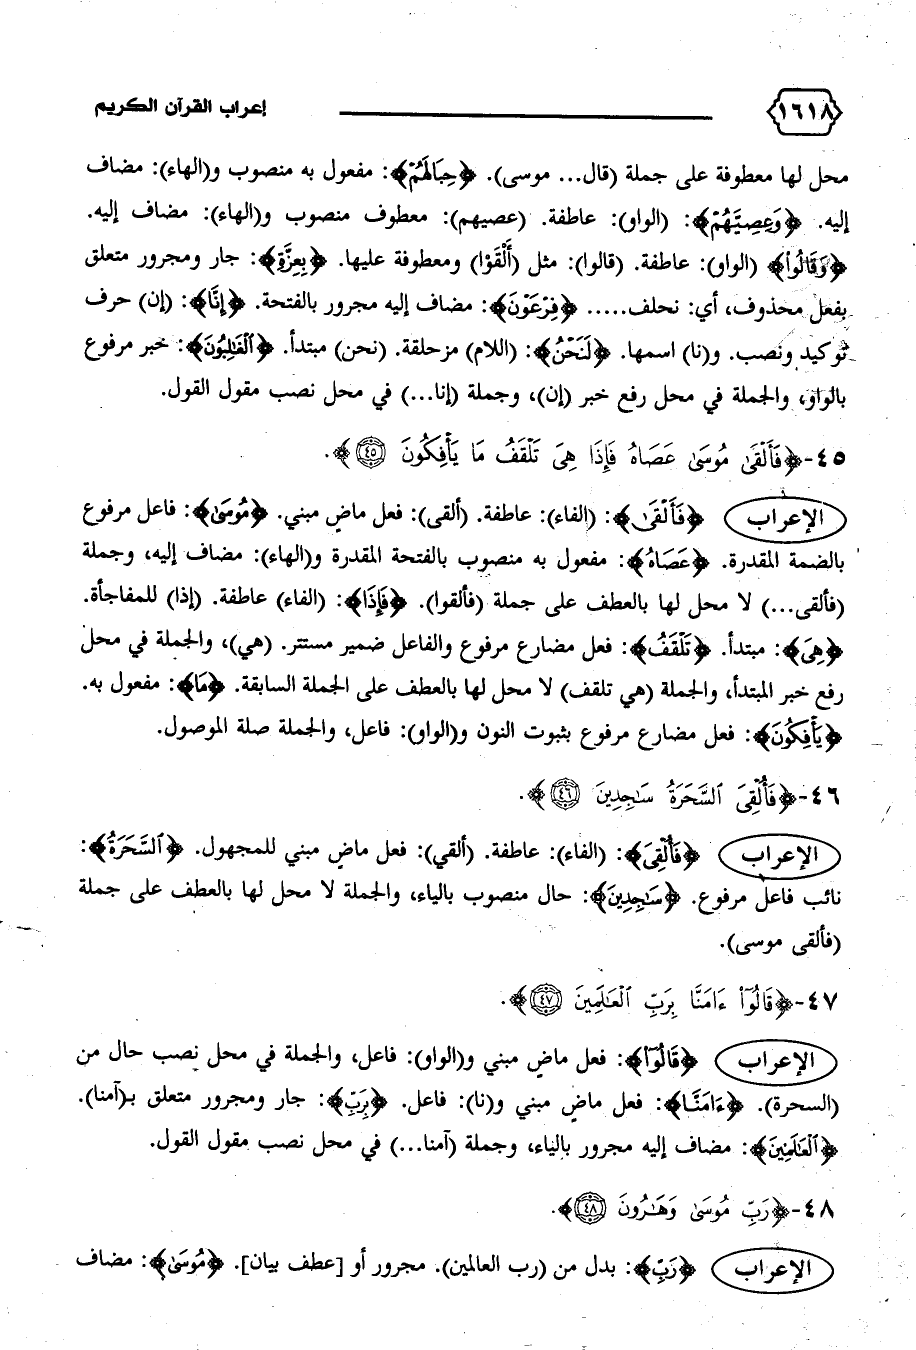 ١٦١٨ إعراب القرآن الكريم
محل لها معطوفة على جملة (قال... موسى). ﴿حِبَالَهُمْ﴾: مفعول به منصوب و(الهاء): مضاف
إليه. ﴿وَعِصِيَّهُمْ﴾: (الواو): عاطفة. (عصيهم): معطوف منصوب و(الهاء): مضاف إليه.
﴿وَقَالُوا۟﴾ (الواو): عاطفة. (قالوا): مثل (أَلْقَوْا) ومعطوفة عليها. ﴿بِعِزَّةِ﴾: جار ومجرور متعلق
بفعل محذوف، أي: نحلف..... ﴿فِرْعَوْنَ﴾: مضاف إليه مجرور بالفتحة. ﴿إِنَّا﴾: (إن) حرف
توكيد ونصب. و(نا) اسمها. ﴿لَنَحْنُ﴾: (اللام) مزحلقة. (نحن) مبتدأ. ﴿ٱلْغَٰلِبُونَ﴾: خبر مرفوع
بالواو، والجملة في محل رفع خبر (إن)، وجملة (إنا...) في محل نصب مقول القول.
٤٥-﴿فَأَلْقَىٰ مُوسَىٰ عَصَاهُ فَإِذَا هِىَ تَلْقَفُ مَا يَأْفِكُونَ ٤٥﴾.
الإعراب ﴿فَأَلْقَىٰ﴾: (الفاء): عاطفة. (ألقى): فعل ماضٍ مبني. ﴿مُوسَىٰ﴾: فاعل مرفوع
بالضمة المقدرة. ﴿عَصَاهُ﴾: مفعول به منصوب بالفتحة المقدرة و(الهاء): مضاف إليه، وجملة
(فألقى...) لا محل لها بالعطف على جملة (فألقوا). ﴿فَإِذَا﴾: (الفاء) عاطفة. (إذا) للمفاجأة.
﴿هِىَ﴾: مبتدأ. ﴿تَلْقَفُ﴾: فعل مضارع مرفوع والفاعل ضمير مستتر. (هي)، والجملة في محل
رفع خبر المبتدأ، والجملة (هي تلقف) لا محل لها بالعطف على الجملة السابقة. ﴿مَا﴾: مفعول به.
﴿يَأْفِكُونَ﴾: فعل مضارع مرفوع بثبوت النون و(الواو): فاعل، والجملة صلة الموصول.
٤٦-﴿فَأُلْقِىَ ٱلسَّحَرَةُ سَٰجِدِينَ ٤٦﴾.
الإعراب ﴿فَأُلْقِىَ﴾: (الفاء): عاطفة. (ألقي): فعل ماضٍ مبني للمجهول. ﴿ٱلسَّحَرَةُ﴾:
نائب فاعل مرفوع. ﴿سَٰجِدِينَ﴾: حال منصوب بالياء، والجملة لا محل لها بالعطف على جملة
(فألقى موسى).
٤٧-﴿قَالُوٓا۟ ءَامَنَّا بِرَبِّ ٱلْعَٰلَمِينَ ٤٧﴾.
الإعراب ﴿قَالُوٓا۟﴾: فعل ماضٍ مبني و(الواو): فاعل، والجملة في محل نصب حال من
(السحرة). ﴿ءَامَنَّا﴾: فعل ماضٍ مبني و(نا): فاعل. ﴿بِرَبِّ﴾: جار ومجرور متعلق بـ(آمنا).
﴿ٱلْعَٰلَمِينَ﴾: مضاف إليه مجرور بالياء، وجملة (آمنا...) في محل نصب مقول القول.
٤٨-﴿رَبِّ مُوسَىٰ وَهَٰرُونَ ٤٨﴾.
الإعراب ﴿رَبِّ﴾: بدل من (رب العالمين). مجرور أو [عطف بيان]. ﴿مُوسَىٰ﴾: مضاف